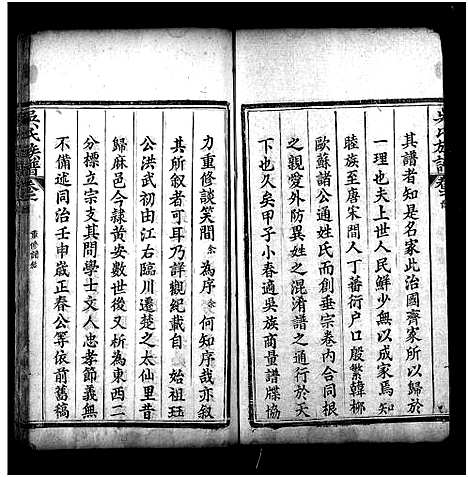 其譜者知是名家此治國齊家所以歸於
一理也夫上世人民鮮少無以成家焉知
睦族至唐宋間人丁蕃衍户口殷繁韓栁
歐蘇諸公通姓氏而創垂宗卷内合同根
之親愛外防異姓之混淆譜之通行於天
下也久矣甲子小春適吳族商量譜牒恊
力重修談笑間余為序余何知序哉亦叙
其所叙者可耳乃詳觀紀載自　始祖珏
公洪武初由江右臨川遷楚之太仙里昔
歸麻邑今隸黄安數世後又析為東西二
分標立宗支其間學士文人忠孝節義無
不備述同治壬申歳正春公等依前舊稿
吳氏族譜
卷之首
重修譜叙